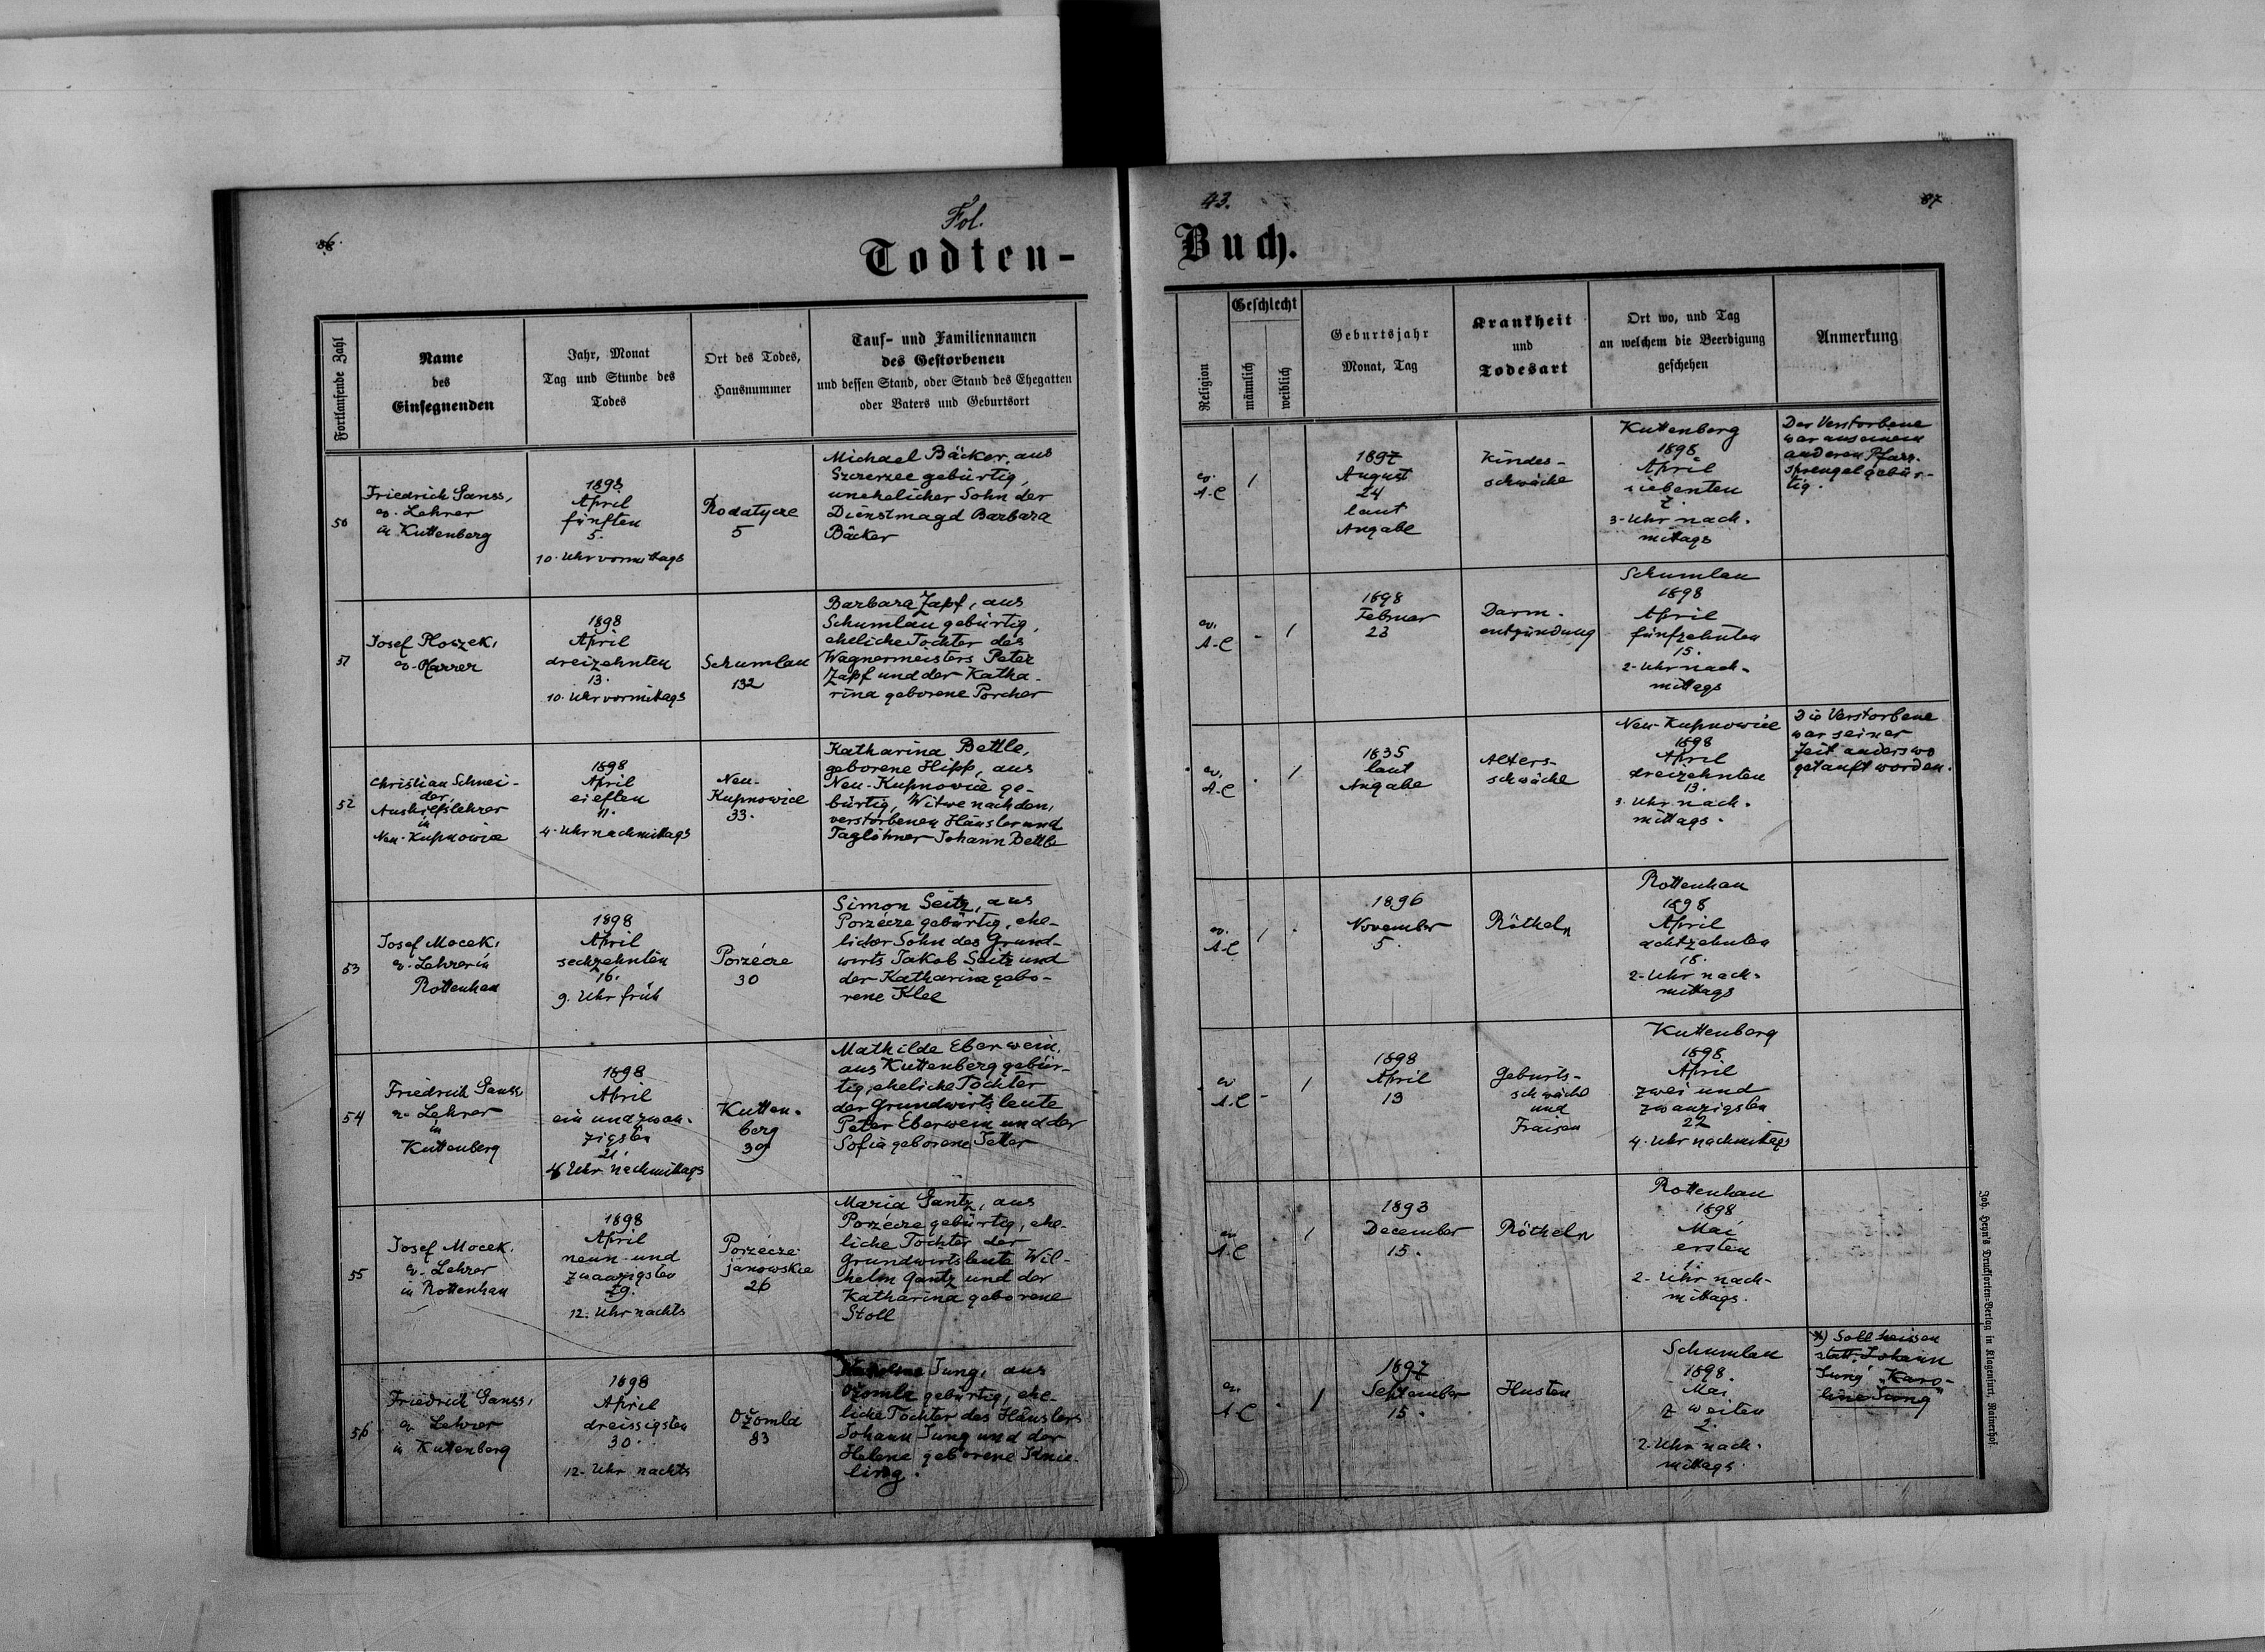 Fol.
43.
86.
87
Todten-
Buch.
Fortlaufende Zahl
Name
des
Einsegnenden
Jahr, Monat
Tag und Stunde des
Todes
Ort des Todes,
Hausnummer
Tauf- und Familiennamen
des Gestorbenen
und dessen Stand, oder Stand des Ehegatten
oder Vaters und Geburtsort
Religion
Geschlecht
männlich
weiblich
Geburtsjahr
Monat, Tag
Krankheit
und
Todesart
Ort wo, und Tag
an welchem die Beerdigung
geschehen
Anmerkung
50
Friedrich Ganss,
ev. Lehrer
in Kuttenberg
1898
April
fünften
5.
10. Uhr vormittags
Rodatycze
5
Michael Bäcker, aus
Szczerzec gebürtig,
unehelicher Sohn der
Dienstmagd Barbara
Bäcker
ev.
A.C
1
1897
August
24
laut
Angabe
Kindes-
schwäche
Kuttenberg
1898
April
siebenten
7.
3-Uhr nach-
mittags
Der Verstorbene
war aus einem
anderen Pfarr-
sprengel gebür-
tig.
51
Josef Ploszek,
ev. Pfarrer
1898
April
dreizehnten
13.
10. Uhr vormittags
Schumlau
132
Barbara Zapf, aus
Schumlau gebürtig,
eheliche Tochter des
Wagnermeisters Peter
Zapf und der Katha-
rina geborene Porcher
ev.
A.C
-
1
1898
Februar
23
Darm-
entzündung
Schumlau
1898
April
fünfzehnten
15.
2-Uhr nach-
mittags
52
Christian Schnei-
der,
Aushilfslehrer
in
Neu-Kupnowice
1898
April
eilften
11.
4-Uhr nachmittags
Neu-
Kupnowice
33.
Katharina Bettle,
geborene Hipp, aus
Neu-Kupnowice ge-
bürtig, Witwe nach dem
verstorbenen Häusler und
Taglöhner Johann Bettle
ev.
A.C
-
1
1835
laut
Angabe
Alters-
schwäche
Neu-Kupnowice
1898
April
dreizehnten
13.
3. Uhr nach-
mittags.
Die Verstorbene
war seiner
Zeit anderswo
getauft worden.
53
Josef Mocek,
ev. Lehrer in
Rottenhan
1898
April
sechzehnten
16.
9. Uhr früh
Porzécze
30
Simon Seitz, aus
Porzécze gebürtig, ehe-
licher Sohn des Grund-
wirts Jakob Seitz und
der Katharina gebo-
rene Klee
ev.
A.C
1
-
1896
November
5.
Rötheln
Rottenhan
1898
April
achtzehnten
18.
2-Uhr nach-
mittags
54
Friedrich Ganss
ev. Lehrer
in
Kuttenberg
1898
April
ein und zwan-
zigsten
21.
4 Uhr nachmittags
Kutten-
berg
39
Mathilde Eberwein,
aus Kuttenberg gebür-
tig, eheliche Tochter
der Grundwirtsleute
Peter Eberwein und der
Sofia geborene Jetter
ev.
A.C
-
1
1898
April
13
Geburts-
schwäche
und
Fraisen
Kuttenberg
1898
April
zwei und
zwanzigsten
22
4. Uhr nachmittags
55
Josef Mocek,
ev. Lehrer
in Rottenhan
1898
April
neun und
zwanzigsten
29.
12. Uhr nachts
Porzécze
janowskie
26
Maria Gantz, aus
Porzécze gebürtig, ehe-
liche Tochter der
Grundwirtsleute Wil-
helm Gantz und der
Katharina geborene
Stoll
ev.
A.C
-
1
1893
December
15.
Rötheln
Rottenhan
1898
Mai
ersten
1.
2-Uhr nach-
mittags.
56
Friedrich Ganss,
ev. Lehrer
in Kuttenberg
1898
April
dreissigsten
30.
12-Uhr nachts
Ożomla
83
Karoline Jung, aus
Ożomla gebürtig, ehe-
liche Tochter des Häuslers
Johann Jung und der
Helene geborene Knie-
ling.
ev.
A.C
-
1
1897
September
15.
Husten
Schumlau
1898.
Mai
zweiten
2.
2-Uhr nach-
mittags.
*) Soll heissen
statt „Johann
Jung" „Karo-
line Jung"
Joh. Heyn's Drucksorten-Verlag in Klagenfurt, Rainerhof.